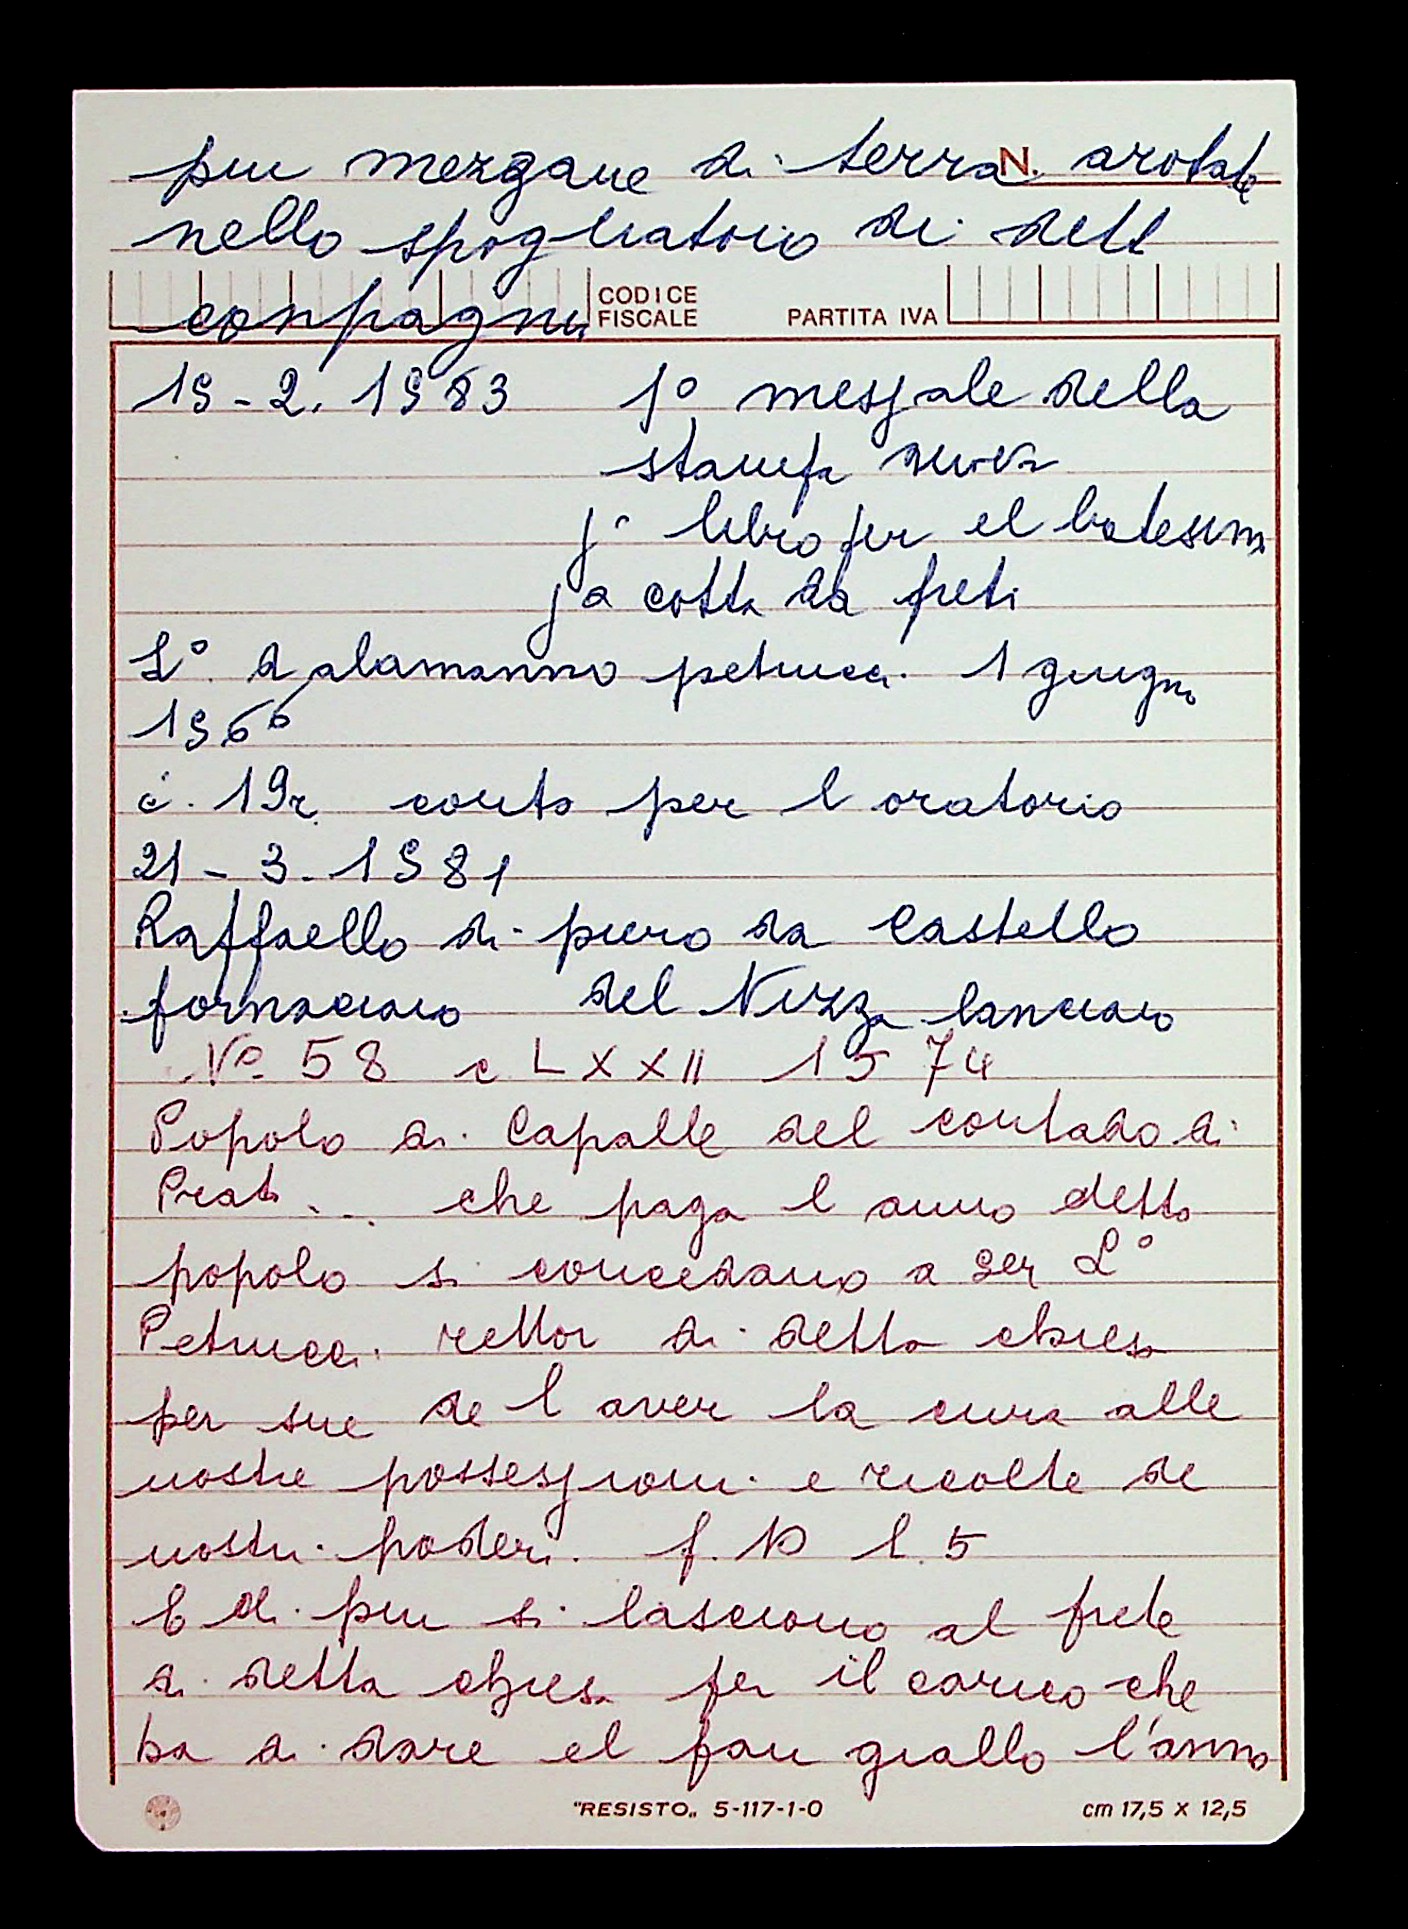 piu mezgane di terra N. arotate
nello spogliatoio di dett
conpagni CODICE FISCALE PARTITA IVA
19-2.1983 1° messale della
stanpa nuova
j° libro per el batesimo
ja cotta da preti
L° d alamanno petrucci. 1 giugno
1966
c. 19r conto per l oratorio
21-3-1981
Raffaello di piero da Castello
fornaciaio del Nizza lanciaio
N° 58 c LXXII 1574
Popolo di Capalle del contado di
Prato ... che paga l anno detto
popolo si concedano a ser L°
Petrucci rettor di detta chiesa
per sue de l aver la cura alle
nostre possessioni e ricolte de
nostri poderi f. 10 l. 5
E di piu si lasciono al prete
di detta chiesa per il carico che
ha di dare el pan giallo l'anno
"RESISTO„ 5-117-1-0 cm 17,5 x 12,5